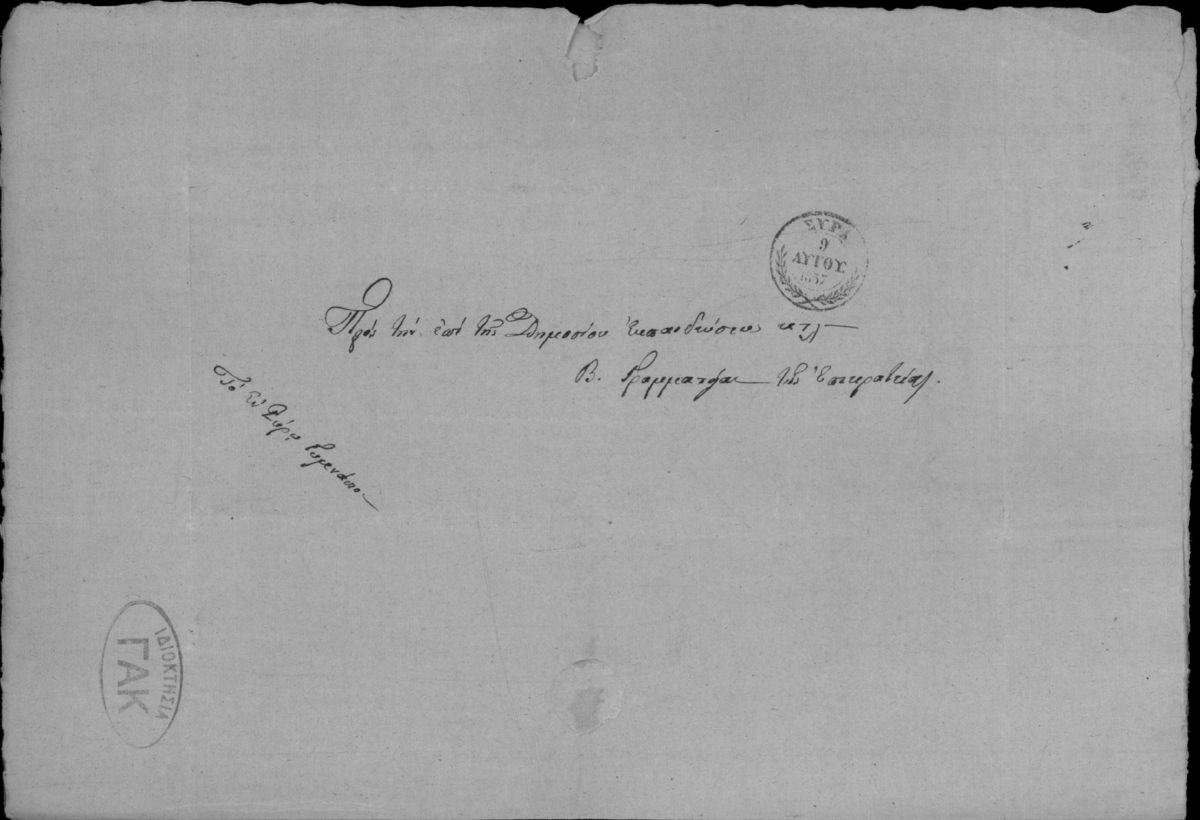 ΣΥΡΑ
9
ΑΥΓΟΥ.
1837
Πρὸς τὴν ἐπὶ τῆς Δημοσίου Ἐκπαιδεύσεως κτλ
Β. Γραμματείαν τῆς Ἐπικρατείας.
Τὸ ἐν Σύρῳ Γυμνάσιο
ΙΔΙΟΚΤΗΣΙΑ
ΓΑΚ